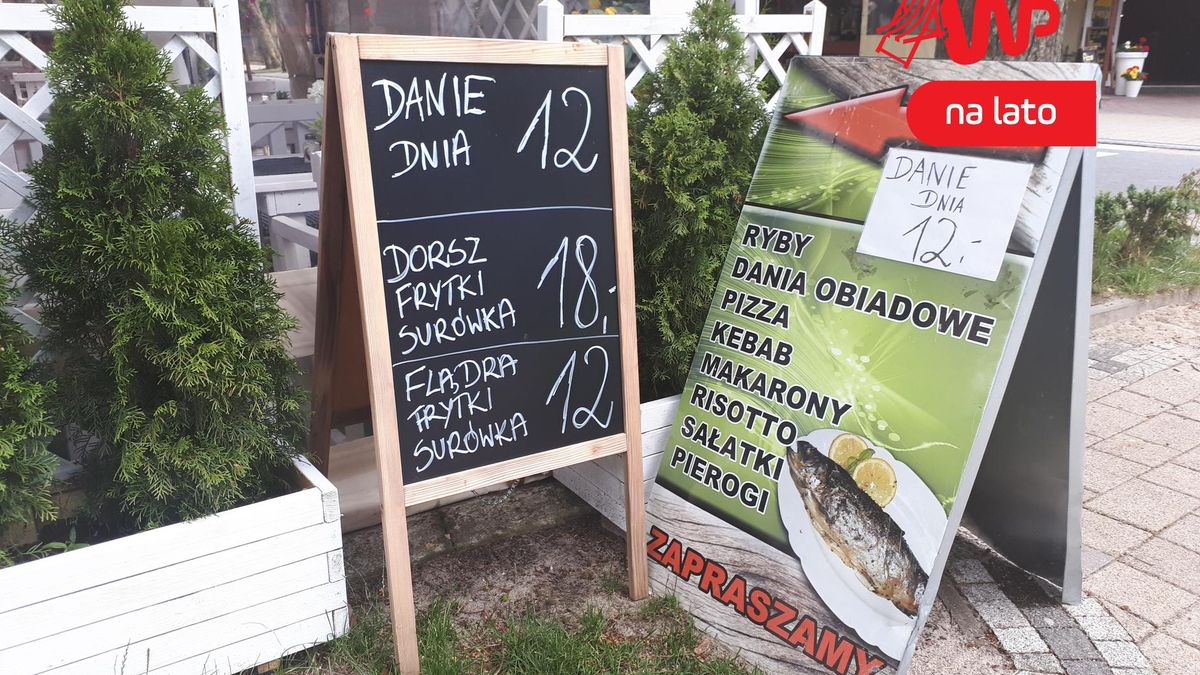 DANIE 12
DNIA
DORSZ 18,-
FRYTKI
SURÓWKA
FLĄDRA 12
FRYTKI
SURÓWKA
WP
na lato
DANIE
DNIA
12.-
RYBY
DANIA OBIADOWE
PIZZA
KEBAB
MAKARONY
RISOTTO
SAŁATKI
PIEROGI
ZAPRASZAMY